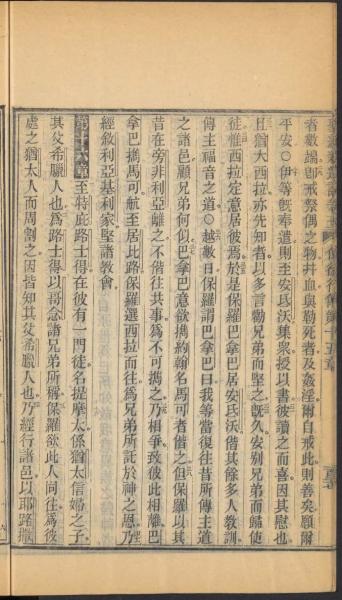 者數端即戒祭偶之物并血與勒死者及姦淫爾自戒此則善矣願爾
平安〇伊等既奉遣則至安氏沃集衆授以書彼讀之而喜因其慰也
且猶大西拉亦先知者以多言勸兄弟而堅之既久安別兄弟而歸使
徒惟西拉定意居彼焉於是保羅巴拿巴居安氏沃偕其餘多人教訓
傳主福音之道〇越數日保羅謂巴拿巴曰我等當復往昔所傳主道
之諸邑顧兄弟何似巴拿巴意欲攜約翰名馬可者偕之但保羅以其
昔在旁非利亞離之不偕往共事爲不可攜之乃相爭致彼此相離巴
拿巴攜馬可航至居比路保羅選西拉而往爲兄弟所託於神之恩乃
經敘利亞基利家堅諸教會
第十六章至特庇路士得在彼有一門徒名提摩太係猶太信婦之子
其父希臘人也爲路士得以哥念諸兄弟所稱保羅欲此人同往爲彼
處之猶太人而周割之因皆知其父希臘人也乃經行諸邑以耶路撒